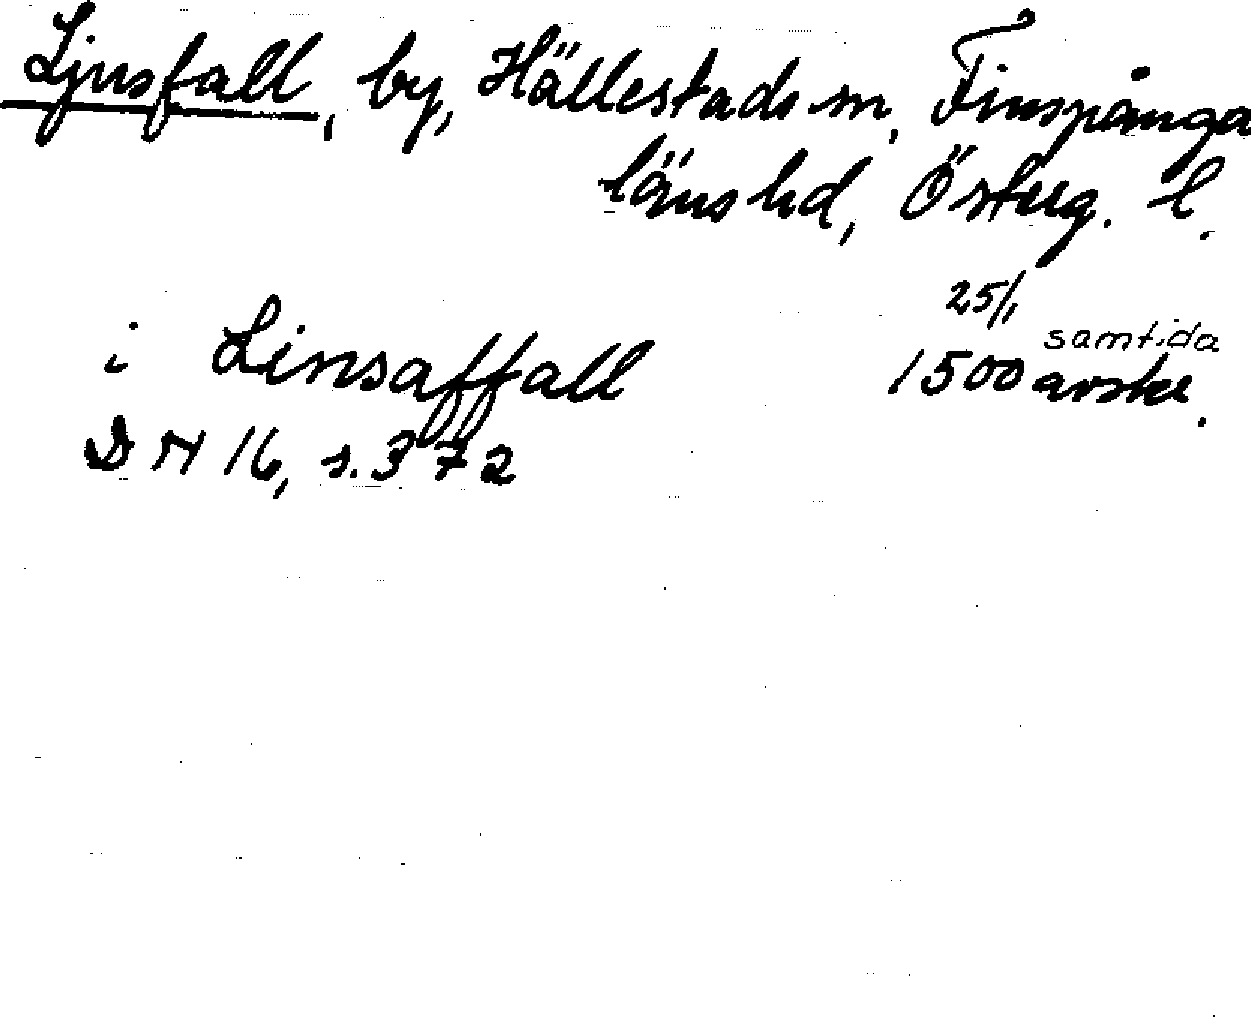 Ljusfall, by, Hällestads sn, Finspånga
läns hd, Österg. l.
25/1
i Linsaffall 1500 samtida avskr.
DN 16, s. 372